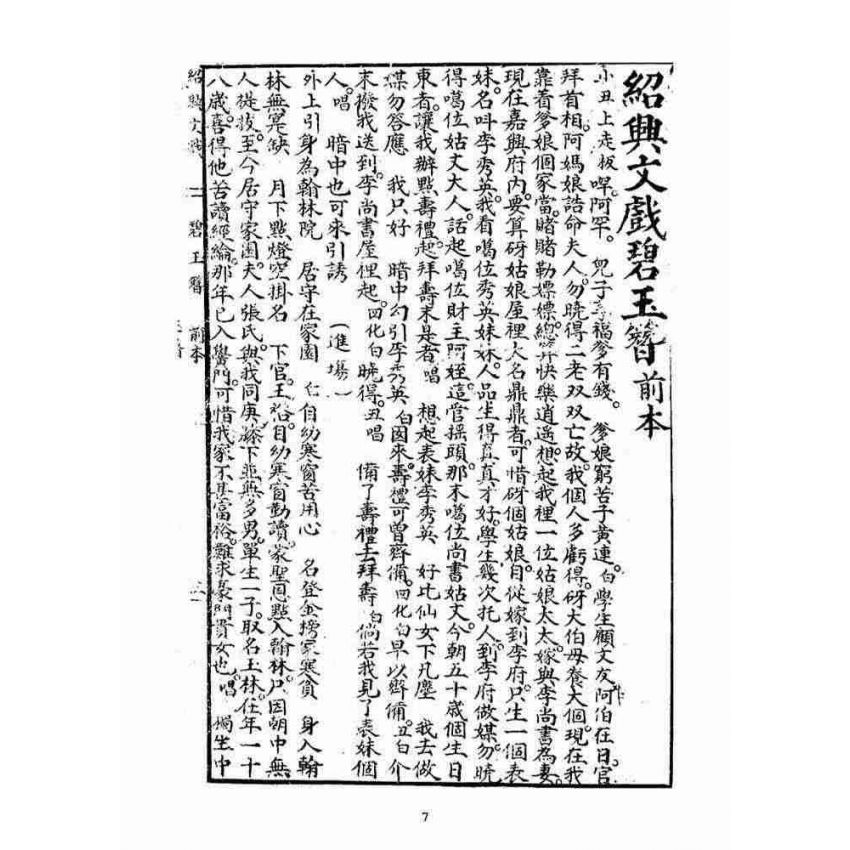 紹興文戲碧玉簪前本
小丑上走板啤阿罕。兒子享福爹有錢。爹娘窮苦子黃連。白學生顧文友阿伯在日。官
拜首相。阿媽娘誥命夫人。勿曉得二老双双亡故。我個人多虧得。砑大伯母養大個。現在我
靠着爹娘個家當。賭賭勒嫖嫖。總算快樂逍遥。想起我裡一位姑娘太太。嫁與李尚書為妻。
現在嘉興府內。要算砑姑娘屋裡大名鼎鼎者。可惜砑個姑娘。自從嫁到李府。只生一個表
妹。名叫李秀英。我看噶位秀英妹妹。人品生得真真才好。學生幾次托人。到李府做媒。勿曉
得噶位姑丈大人。話起噶位財主阿姪。這管摇頭。那末噶位尚書姑丈。今朝五十歲個生日
東者。讓我辦點壽禮。起拜壽末是者。唱 想起表妹李秀英 好比仙女下凡塵 我去做
媒勿答應 我只好 暗中勾引李秀英 白因來。壽禮可曾齊備。四化白早以齊備。丑白介
末撥我送到。李尚書屋俚起。四化白曉得。丑唱 備了壽禮去拜壽 白倘若我見了表妹個
人。唱 暗中也可來引誘 (進場)
外上引身為翰林院 居守在家園 白自幼寒窗苦用心 名登金榜家寒貧 身入翰
林無寔缺 月下點燈空掛名 下官。王裕。自幼寒窗勤讀。蒙聖恩點入翰林。只因朝中無
人提拔。至今居守家園。夫人張氏。與我同庚。膝下並無多男。單生一子。取名玉林。在年一十
八歲。喜得他苦讀經綸。那年已入黌門。可惜我家不甚富裕。難求豪門貴女也。唱 獨生中
紹興文戲 碧玉簪 前本
7